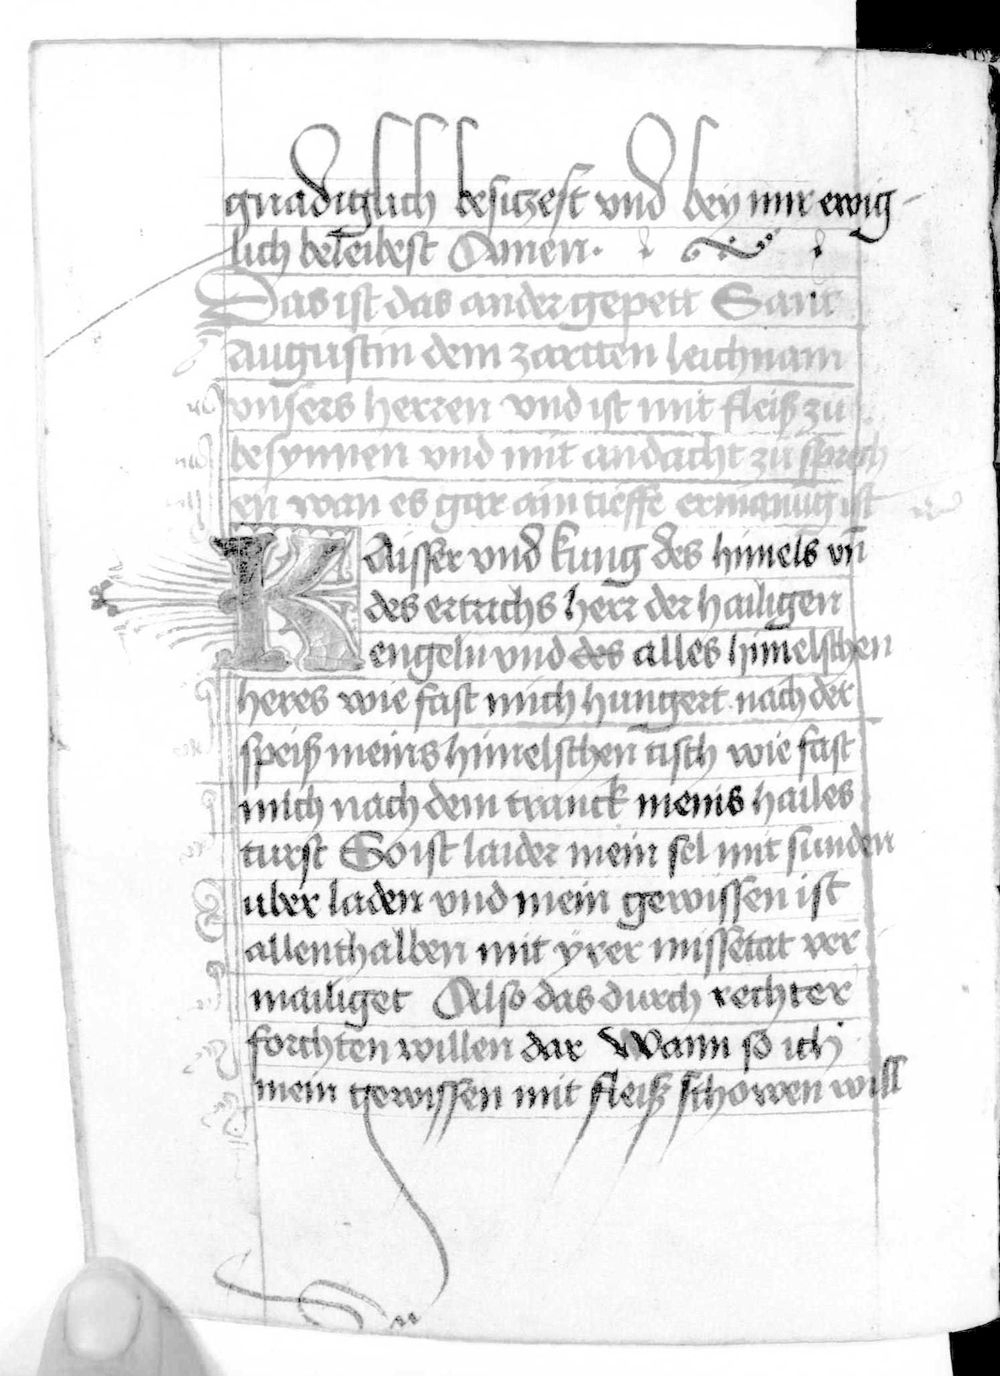 gnadiglich besiczest vnd bey mir ewig
lich beleibest Amen.
Das ist das ander gepett Sant
augustin dem zartten leichnam
vnsers herren vnd ist mit fleiß zu
besynnen vnd mit andacht zu sprech
en wan es gar ain tieffe ermanug ist
Kaisser vnd kung des himels vn̄
des ertrichs herr der hailigen
engeln vnd des alles himelschen
heres wie fast mich hungert nach der
speiß meins himelschen tisch wie fast
mich nach dem tranck meins hailes
turst So ist laider mein sel mit sunden
uber laden vnd mein gewissen ist
allenthalben mit yrer missetat ver
mailiget Also das durch rechter
forchten willen dar Wann so ich
mein gewissen mit fleiß schowen will